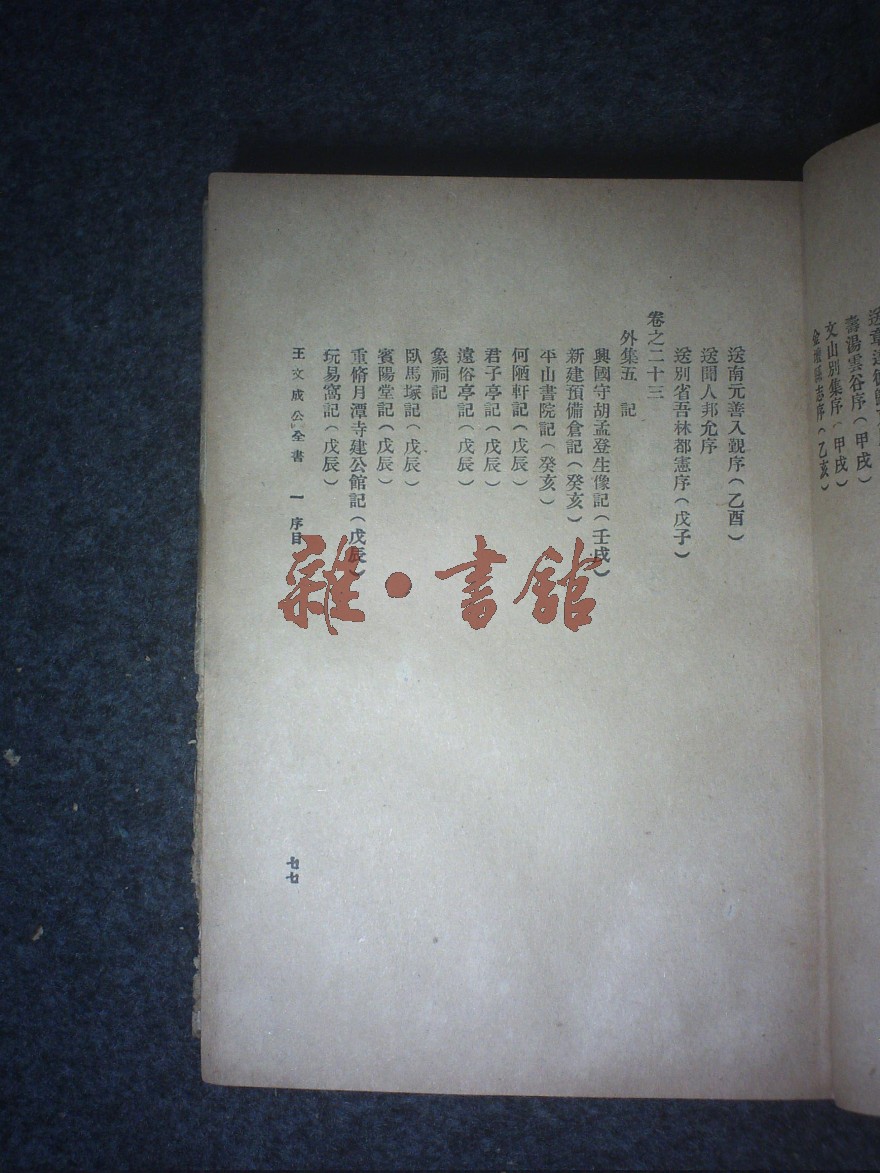 壽湯雲谷序(甲戌)
文山別集序(甲戌)
送南元善入覲序(乙酉)
送聞人邦允序
送別省吾林都憲序(戊子)
卷之二十三
外集五　記
興國守胡孟登生像記(壬戌)
新建預備倉記(癸亥)
平山書院記(癸亥)
何陋軒記(戊辰)
君子亭記(戊辰)
遠俗亭記(戊辰)
象祠記
臥馬塚記(戊辰)
賓陽堂記(戊辰)
重脩月潭寺建公館記(戊辰)
玩易窩記(戊辰)
王文成公全書　一　序目
七七
雜·書館